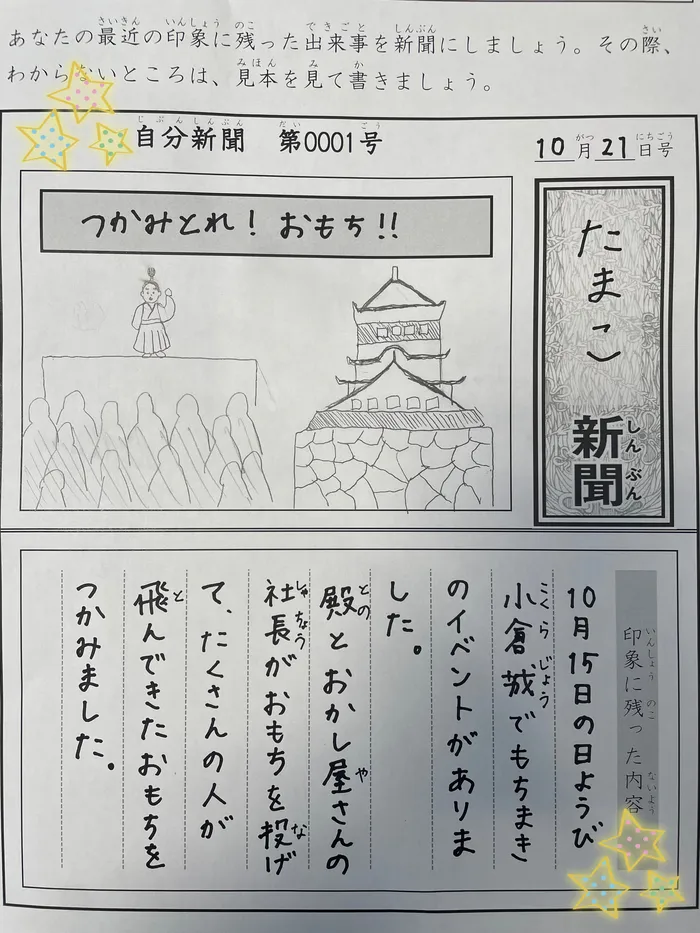 あなたの最近の印象に残った出来事を新聞にしましょう。その際、
わからないところは、見本を見て書きましょう。
自分新聞 第0001号
10月21日号
つかみとれ！おもち!!
たまこ
新聞
印象に残った内容
10月15日の日ようび
小倉城でもちまき
のイベントがありま
した。
殿とおかし屋さんの
社長がおもちを投げ
て、たくさんの人が
飛んできたおもちを
つかみました。